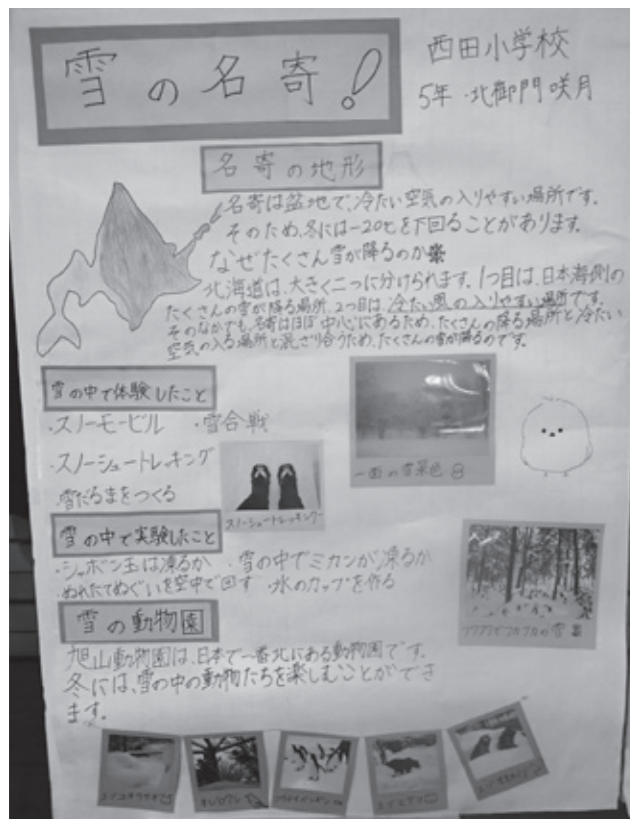 雪の名寄!
西田小学校
5年・北御門咲月
名寄の地形
名寄は盆地で、冷たい空気の入りやすい場所です。
そのため、冬には-20℃を下回ることがあります。
なぜたくさん雪が降るのか※
北海道は、大きく二つに分けられます。1つ目は、日本海側の
たくさんの雪が降る場所、2つ目は、冷たい風の入りやすい場所です。
そのなかでも、名寄はほぼ中心にあるため、たくさんの降る場所と冷たい
空気の入る場所と混ざり合うため、たくさんの雪が降るのです。
雪の中で体験したこと
・スノーモービル ・雪合戦
・スノーシュートレッキング
・雪だるまをつくる
一面の雪景色
スノーシュートレッキング
雪の中で実験したこと
・シャボン玉は凍るか ・雪の中でミカンが凍るか
・ぬれたてぬぐいを空中で回す ・氷のカップを作る
フワフワでフカフカの雪
雪の動物園
旭山動物園は、日本で一番北にある動物園です。
冬には、雪の中の動物たちを楽しむことができ
ます。
エゾユキウサギ
オジロワシ